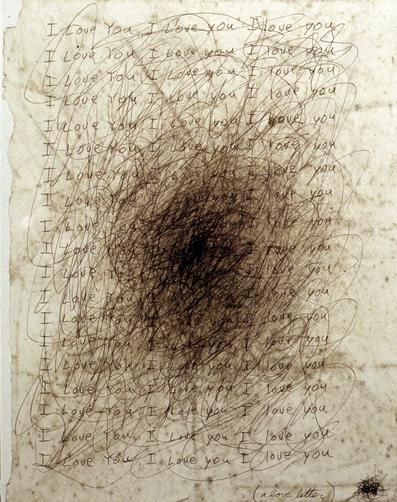 I Love You I Love you I love you
I Love You I Love you I love you
I Love You I Love you I love you
I Love You I Love you I love you
I Love You I Love you I love you
I Love You I Love you I love you
I Love You I Love you I love you
I Love You I love you
I Love I love you
I Love love you
I Love I love you
I Love You I love you
I Love You I Love you I love you
I Love You I Love you I love you
I Love You I Love you I love you
I Love You I Love you I love you
I Love You I Love you I love you
I Love You I Love you I love you
I Love You I Love you I love you
(a love letter)